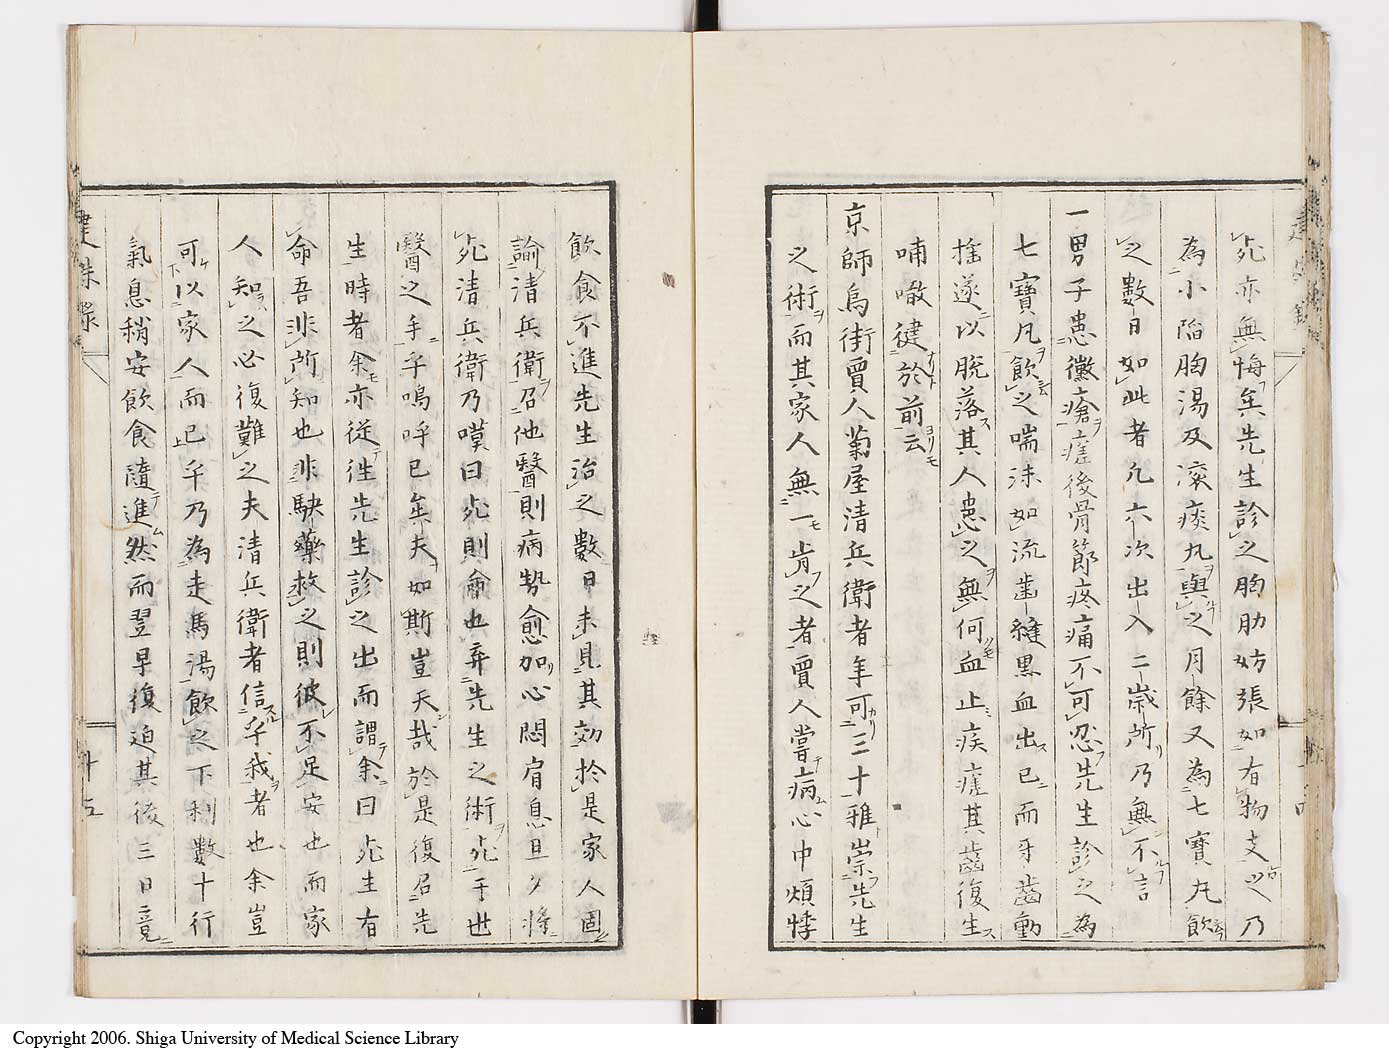 死亦無悔矣先生診之胸肋妨張如有物支之乃
為小陷胸湯及滾痰丸與之月餘又為七寶丸飲
之數日如此者凡六次出入二歲所乃無不言
一男子患黴瘡瘥後骨節疼痛不可忍先生診之為
七寶丸飲之喘沫如流齒縫黑血出已而牙齒動
搖遂以脫落其人患之無何血止疾瘥其齒復生
喃噉健於前云
京師烏街賈人菊屋清兵衛者年可三十雅崇先生
之術而其家人無一肯之者賈人嘗病心中煩悸
飲食不進先生治之數日未見其効於是家人固
諭清兵衛召他醫則病勢愈加心悶肩息旦夕將
死清兵衛乃嘆曰死則命也棄先生之術死于世
醫之手乎嗚呼已矣夫如斯豈天哉於是復召先
生時者余亦從往先生診之出而謂余曰死生有
命吾非所知也非駃藥救之則彼不足安也而家
人知之必復難之夫清兵衛者信乎我者也余豈
可以家人而已乎乃為走馬湯飲之下利數十行
氣息稍安飲食隨進然而翌早復迫其後三日竟
建殊錄
廿五
Copyright 2006. Shiga University of Medical Science Library